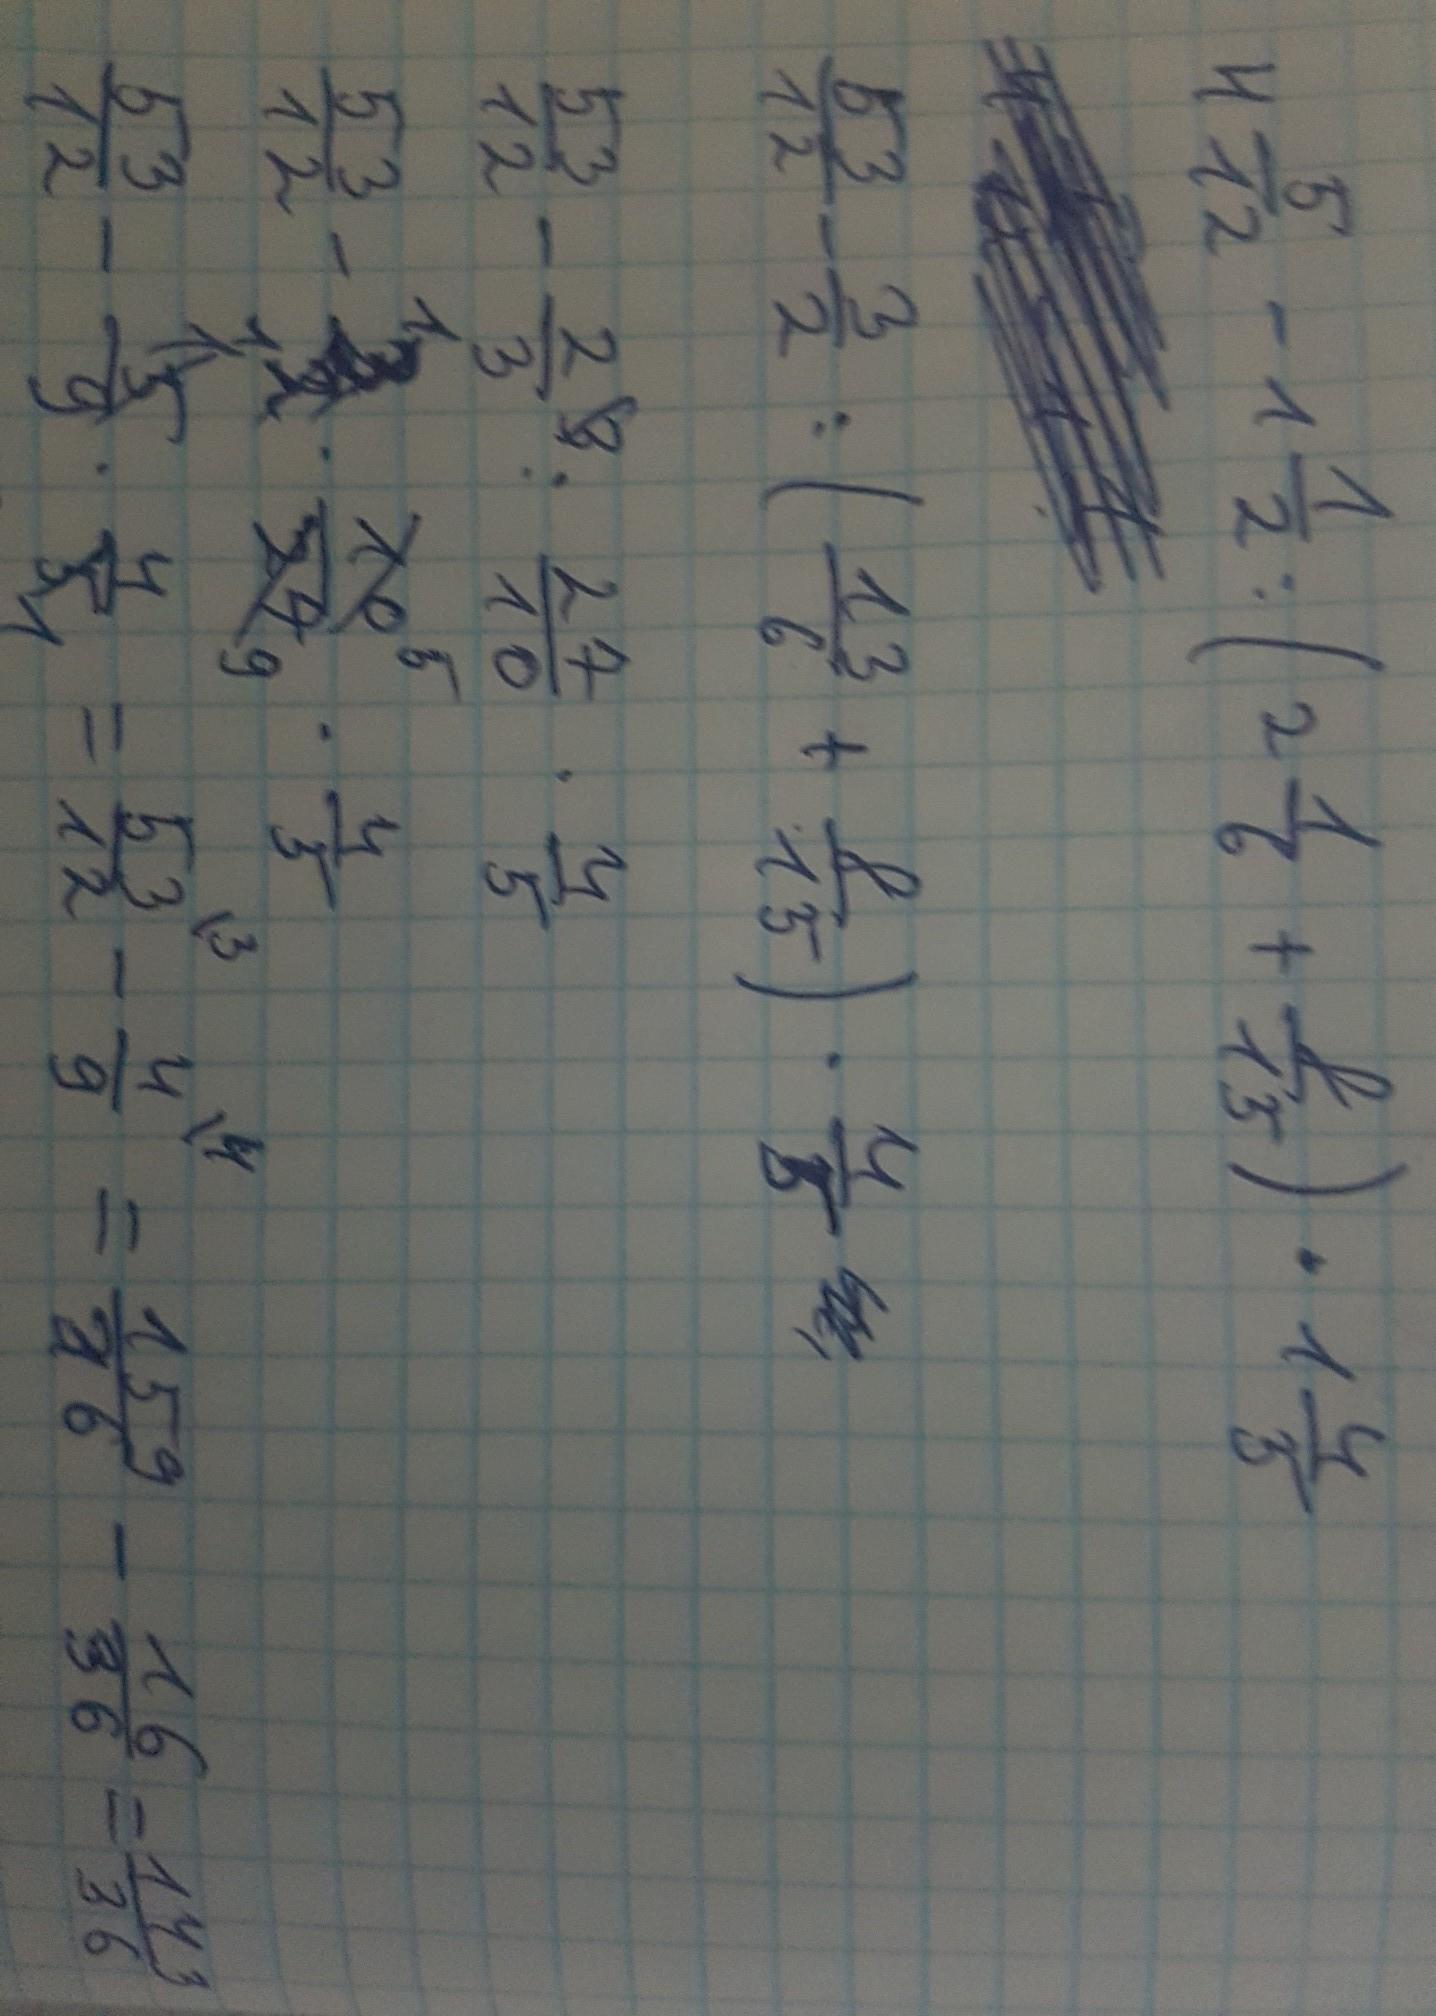 4 5/12 - 1 1/2 : (2 1/6 + 8/15) · 1 4/5
53/12 - 3/2 : (13/6 + 8/15) · 4/5
53/12 - 2/3 : 27/10 · 4/5
53/12 - 1/2 · 10/27 · 4/5
53/12 - 5/9 · 4/5 = 53/12 - 4/9 = 159/36 - 16/36 = 143/36